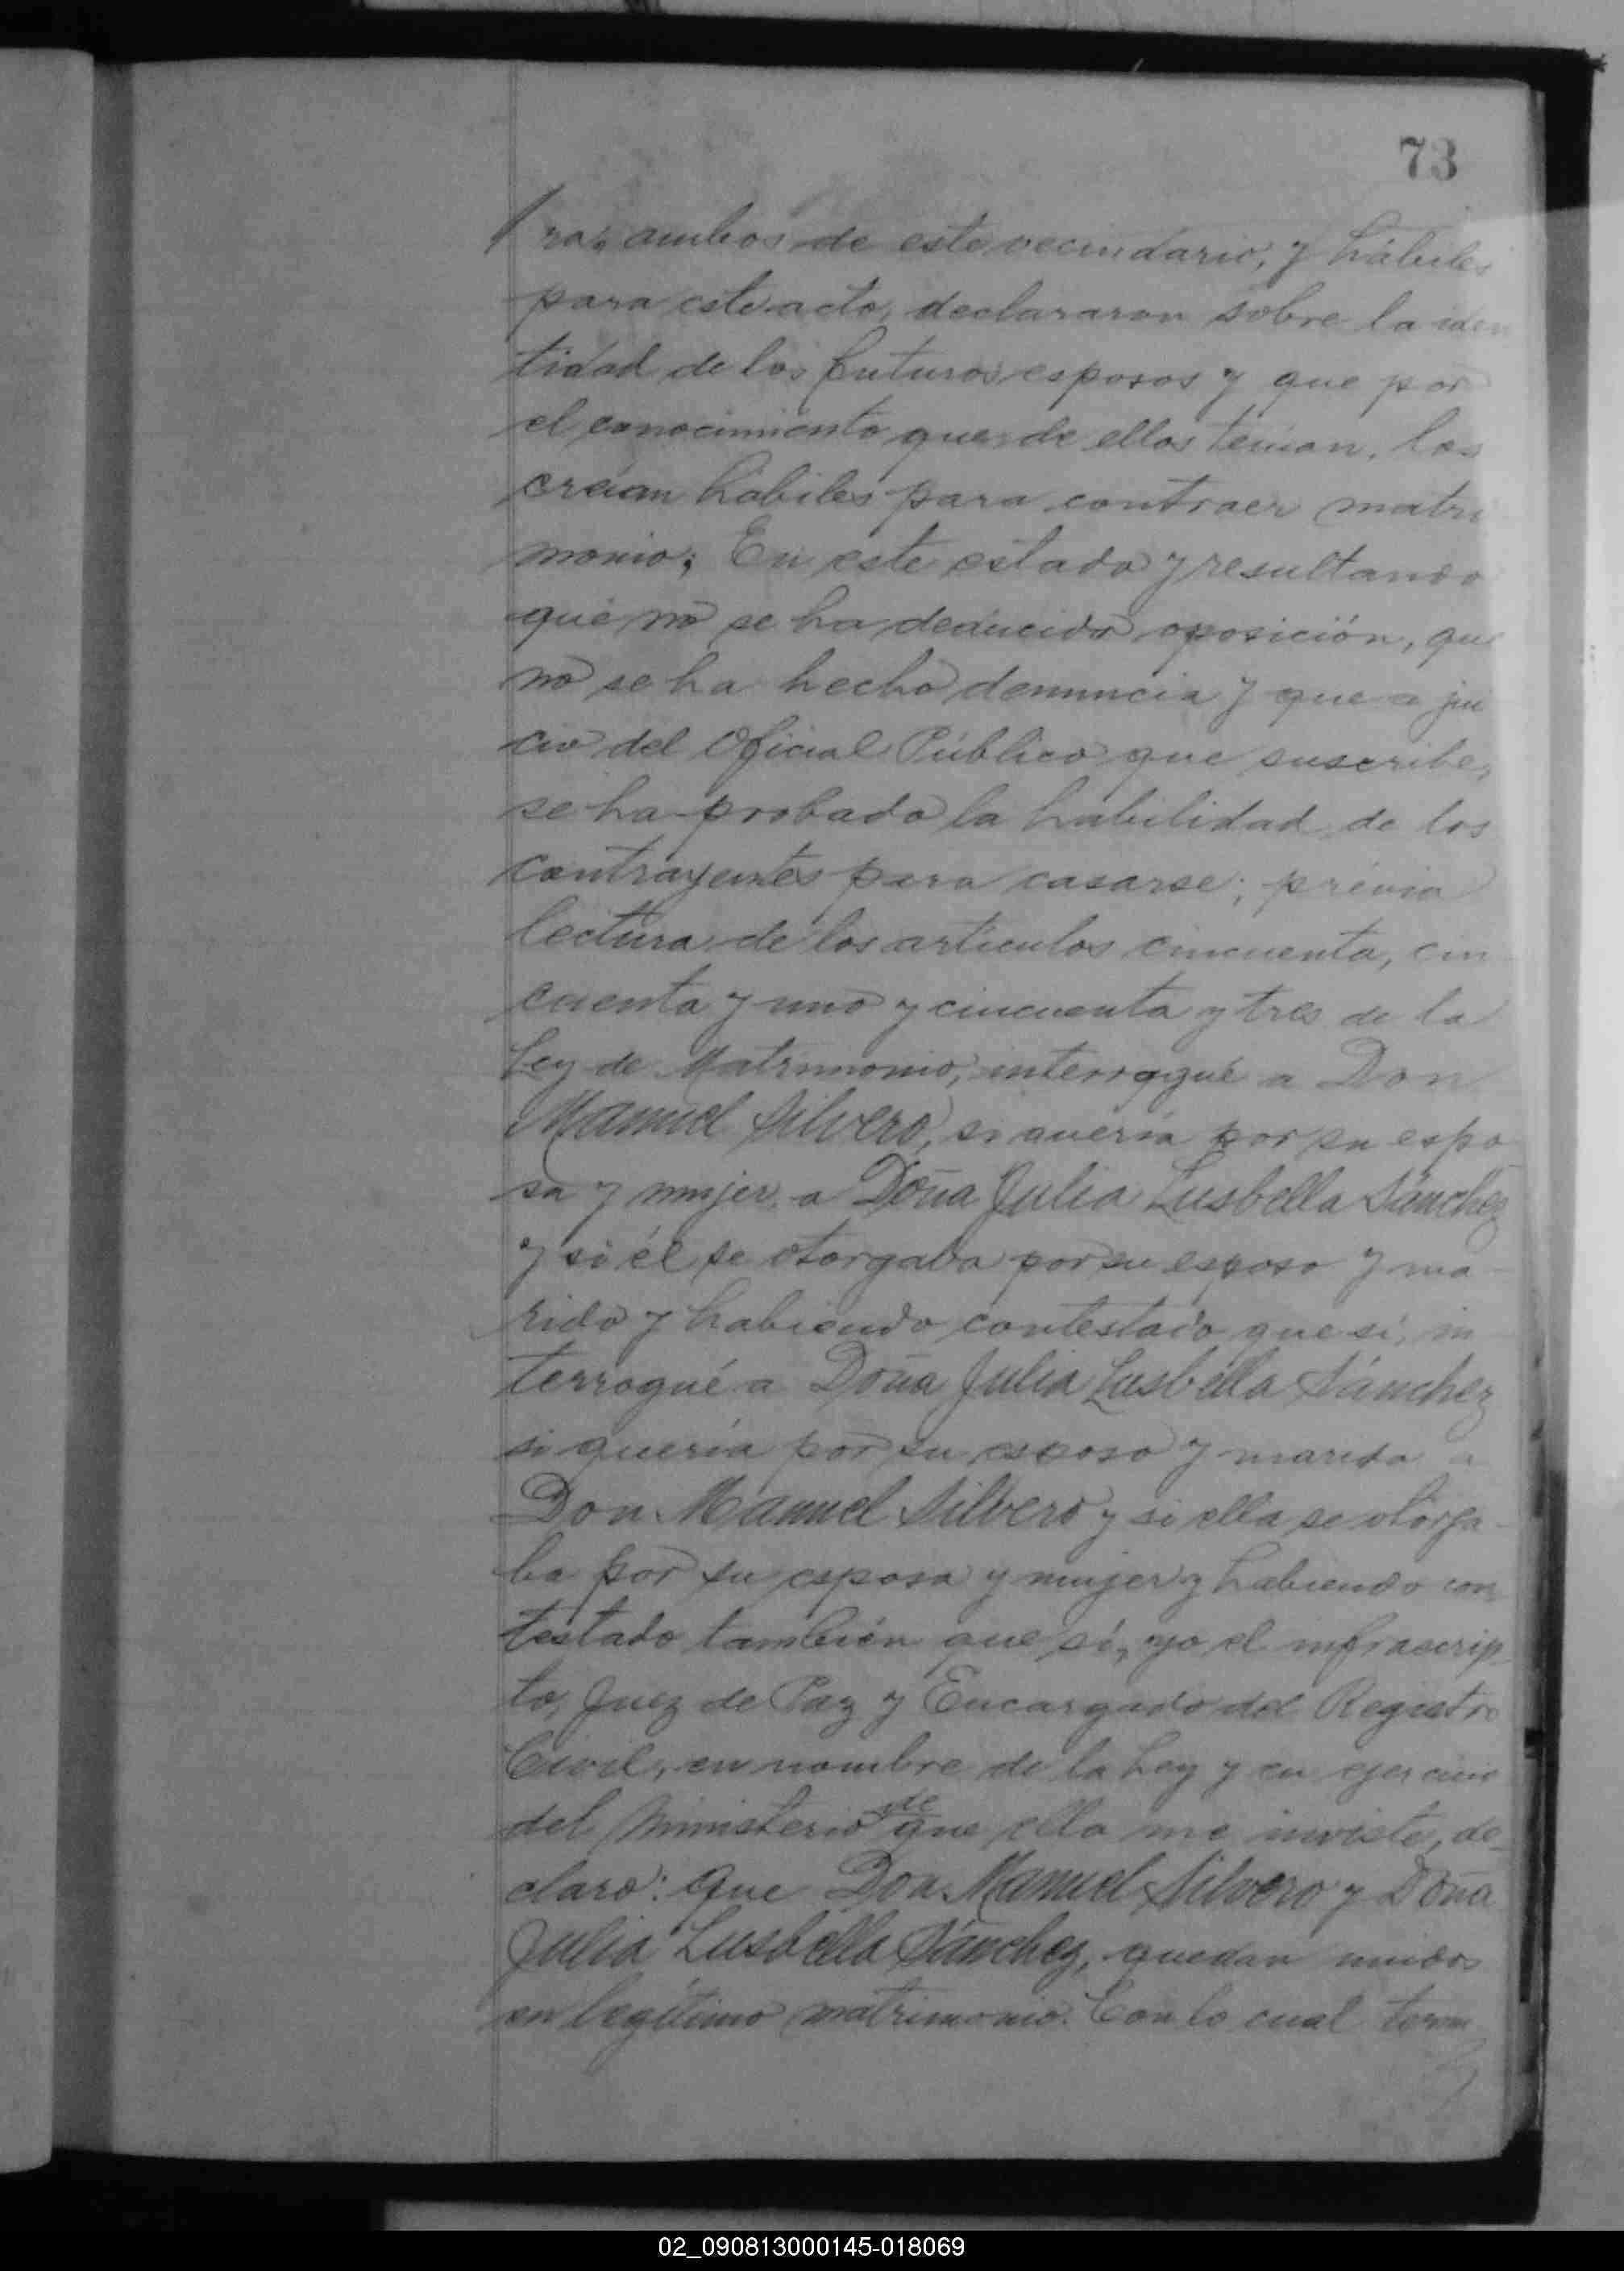 73
ras, ambos de este vecindario, y hábiles
para este acto, declararon sobre la iden
tidad de los futuros esposos y que por
el conocimiento que de ellos tenían, los
creían hábiles para contraer matri
monio; En este estado y resultando
que no se ha deducido oposición, que
no se ha hecho denuncia y que a jui
cio del Oficial Público que suscribe,
se ha probado la habilidad de los
contrayentes para casarse; prévia
lectura de los artículos cincuenta, cin
cuenta y uno y cincuenta y tres de la
Ley de Matrimonio, interrogué a Don
Manuel Silvero, si quería por su espo
sa y mujer, a Doña Julia Lusbella Sánchez
y si él se otorgaba por su esposo y ma
rido y habiendo contestado que sí, in
terrogué a Doña Julia Lusbella Sánchez
si quería por su esposo y marido a
Don Manuel Silvero y si ella se otorga-
ba por su esposa y mujer y habiendo con
testado también que sí, yo el infrascrip
to, Juez de Paz y Encargado del Registro
Civil, en nombre de la Ley y en ejercicio
del Ministerio de que ella me inviste, de-
claro: Que Don Manuel Silvero y Doña
Julia Lusbella Sánchez, quedan unidos
en legítimo matrimonio. Con lo cual term
02_090813000145-018069